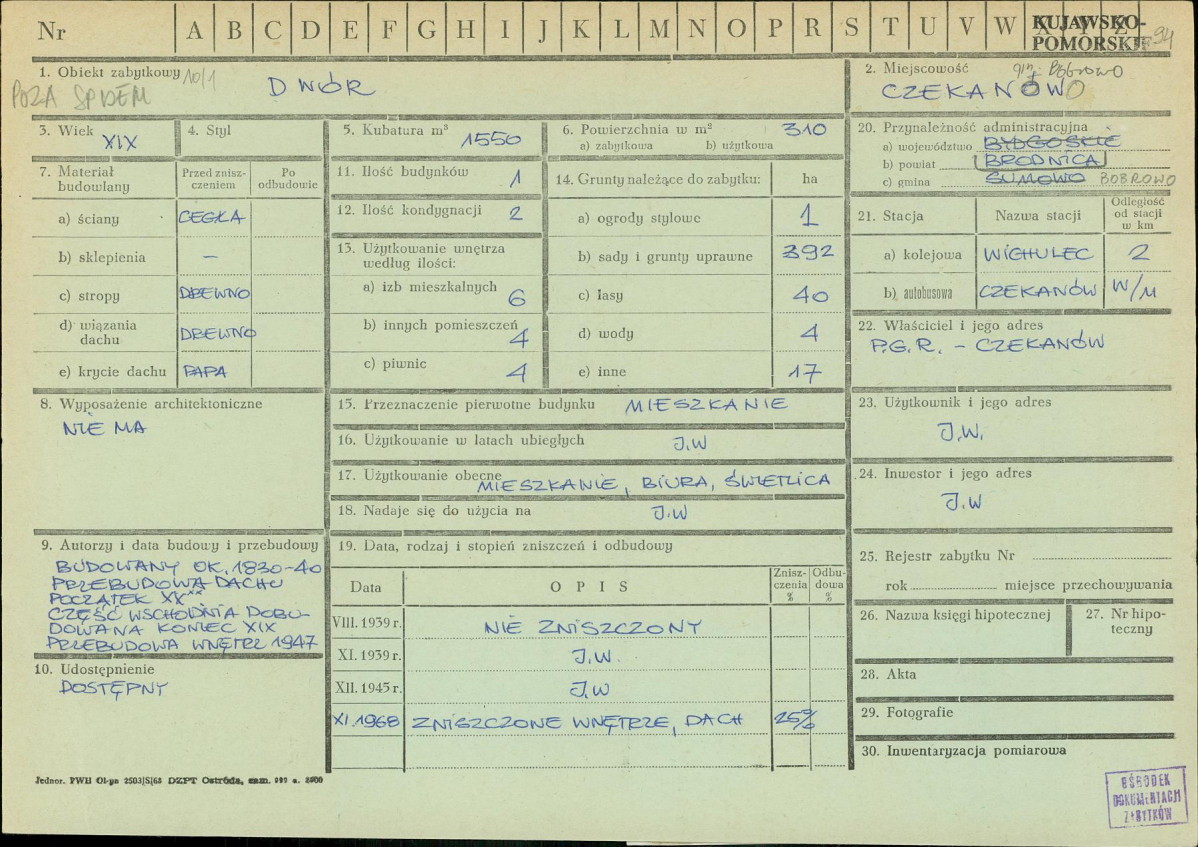 Nr A B C D E F G H I J K L M N O P R S T U V W X Y Z
KUJAWSKO-
POMORSKIE 94
1. Obiekt zabytkowy 10/1
POZA SPISEM
DWÓR
2. Miejscowość gm. Bobrowo
CZEKANOWO
3. Wiek XIX
4. Styl
5. Kubatura m³ 1550
6. Powierzchnia w m² 310
a) zabytkowa b) użytkowa
20. Przynależność administracyjna
a) województwo BYDGOSKIE
b) powiat BRODNICA
c) gmina SUMOWO BOBROWO
7. Materiał
budowlany
Przed znisz-
czeniem
Po
odbudowie
a) ściany CEGŁA
b) sklepienia —
c) stropy DREWNO
d) wiązania
dachu DREWNO
e) krycie dachu PAPA
11. Ilość budynków 1
12. Ilość kondygnacji 2
13. Użytkowanie wnętrza
według ilości:
a) izb mieszkalnych 6
b) innych pomieszczeń 4
c) piwnic 4
14. Grunty należące do zabytku: ha
a) ogrody stylowe 1
b) sady i grunty uprawne 392
c) lasy 40
d) wody 4
e) inne 17
21. Stacja
Nazwa stacji
Odległość
od stacji
w km
a) kolejowa WICHULEC 2
b) autobusowa CZEKANÓW W/M
22. Właściciel i jego adres
P.G.R. – CZEKANÓW
8. Wyposażenie architektoniczne
NIE MA
15. Przeznaczenie pierwotne budynku MIESZKANIE
16. Użytkowanie w latach ubiegłych J.W
17. Użytkowanie obecne MIESZKANIE, BIURA, ŚWIETLICA
18. Nadaje się do użycia na J.W
23. Użytkownik i jego adres
J.W.
24. Inwestor i jego adres
J.W
9. Autorzy i data budowy i przebudowy
BUDOWANY OK. 1830-40
PRZEBUDOWA DACHU
POCZĄTEK XX
CZĘŚĆ WSCHODNIA DOBU-
DOWANA KONIEC XIX
PRZEBUDOWA WNĘTRZ 1947
10. Udostępnienie
DOSTĘPNY
19. Data, rodzaj i stopień zniszczeń i odbudowy
Data
OPIS
Znisz-
czenia
%
Odbu-
dowa
%
VIII. 1939 r. NIE ZNISZCZONY
XI. 1939 r. J.W.
XII. 1945 r. J.W
XI 1968 ZNISZCZONE WNĘTRZE, DACH 25%
25. Rejestr zabytku Nr
rok miejsce przechowywania
26. Nazwa księgi hipotecznej
27. Nr hipo-
teczny
28. Akta
29. Fotografie
30. Inwentaryzacja pomiarowa
Jednor. PWH Ol-yn 2503|S|68 DZPT Ostróda, zam.
OŚRODEK
DOKUMENTACJI
ZABYTKÓW